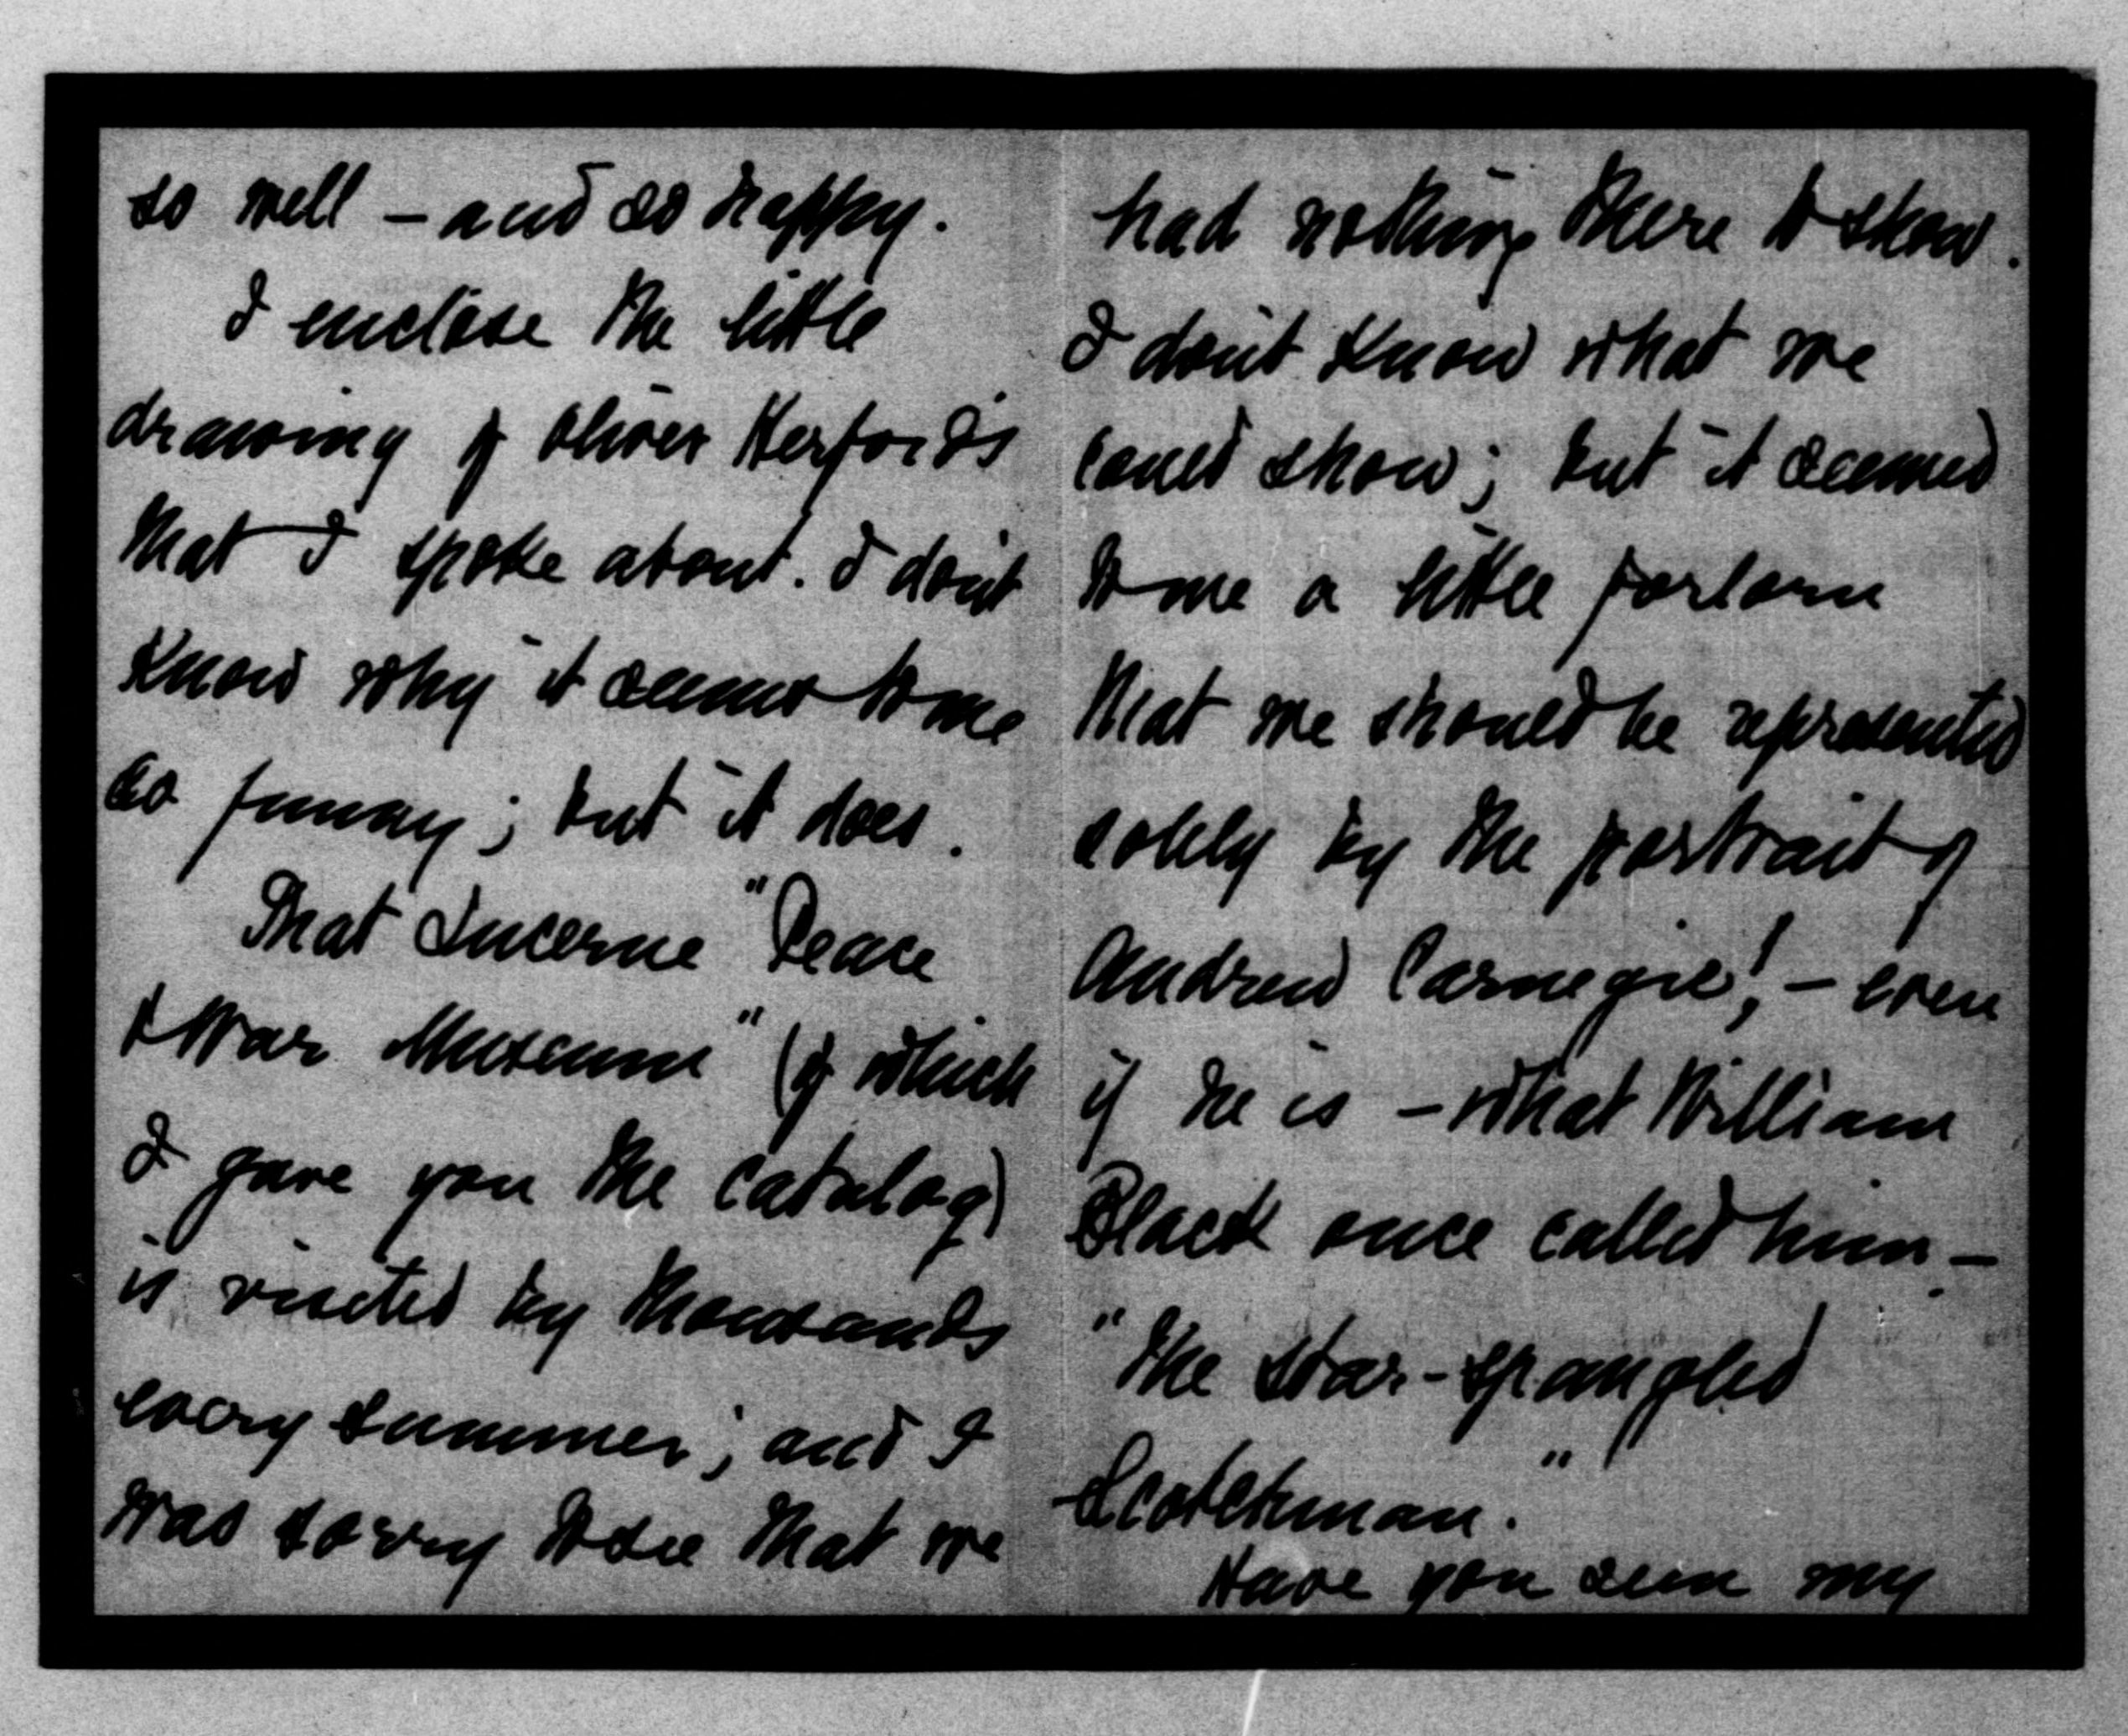 so well – and so happy.
I enclose the little
drawing of Oliver Herford's
that I spoke about. I don't
know why it seems to me
so funny; but it does.
That Lucerne "Peace
& War Museum" (of which
I gave you the catalog)
is visited by thousands
every summer; and I
was sorry to see that we
had nothing there to show.
I don't know what we
could show; but it seemed
to me a little forlorn
that we should be represented
solely by the portrait of
Andrew Carnegie!, – even
if he is – what William
Black once called him, –
"the star-spangled
Scotchman."
Have you seen my